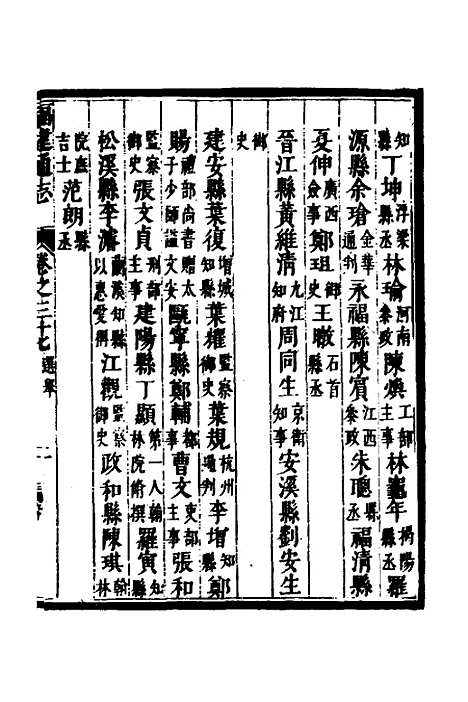 知縣丁坤浮梁縣丞林瑜河南參政陳煥工部主事林鼇年揭陽縣丞羅
源縣余瑲金華通判永福縣陳賓江西參政朱聰縣丞福清縣
夏伸廣西僉事鄭珇御史王暾石首縣丞
晉江縣黃維清九江知府周同生京衛知事安溪縣劉安生
御史
建安縣葉復增城知縣葉櫂監察御史葉規杭州通判李增知縣鄭
賜禮部尚書贈太子少師謚文安甌寧縣鄭輔都事曹文吏部主事張和
監察御史張文貞刑部主事建陽縣丁顯第一人翰林院修撰羅寅知縣
松溪縣李濬蘭溪知縣以惠愛稱江觀監察御史政和縣陳琪翰林
院庶吉士范朗縣丞
福建通志
卷之三十七
選舉